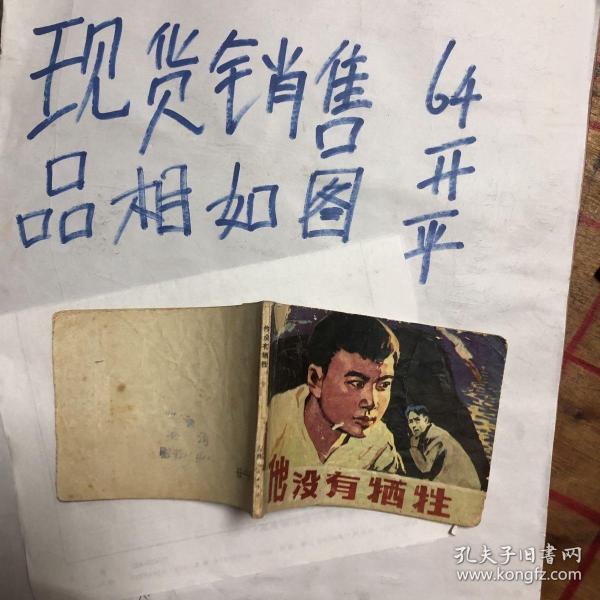 现货销售
品相如图
64开平
他没有牺牲
他没有牺牲
孔夫子旧书网
www.kongfz.com